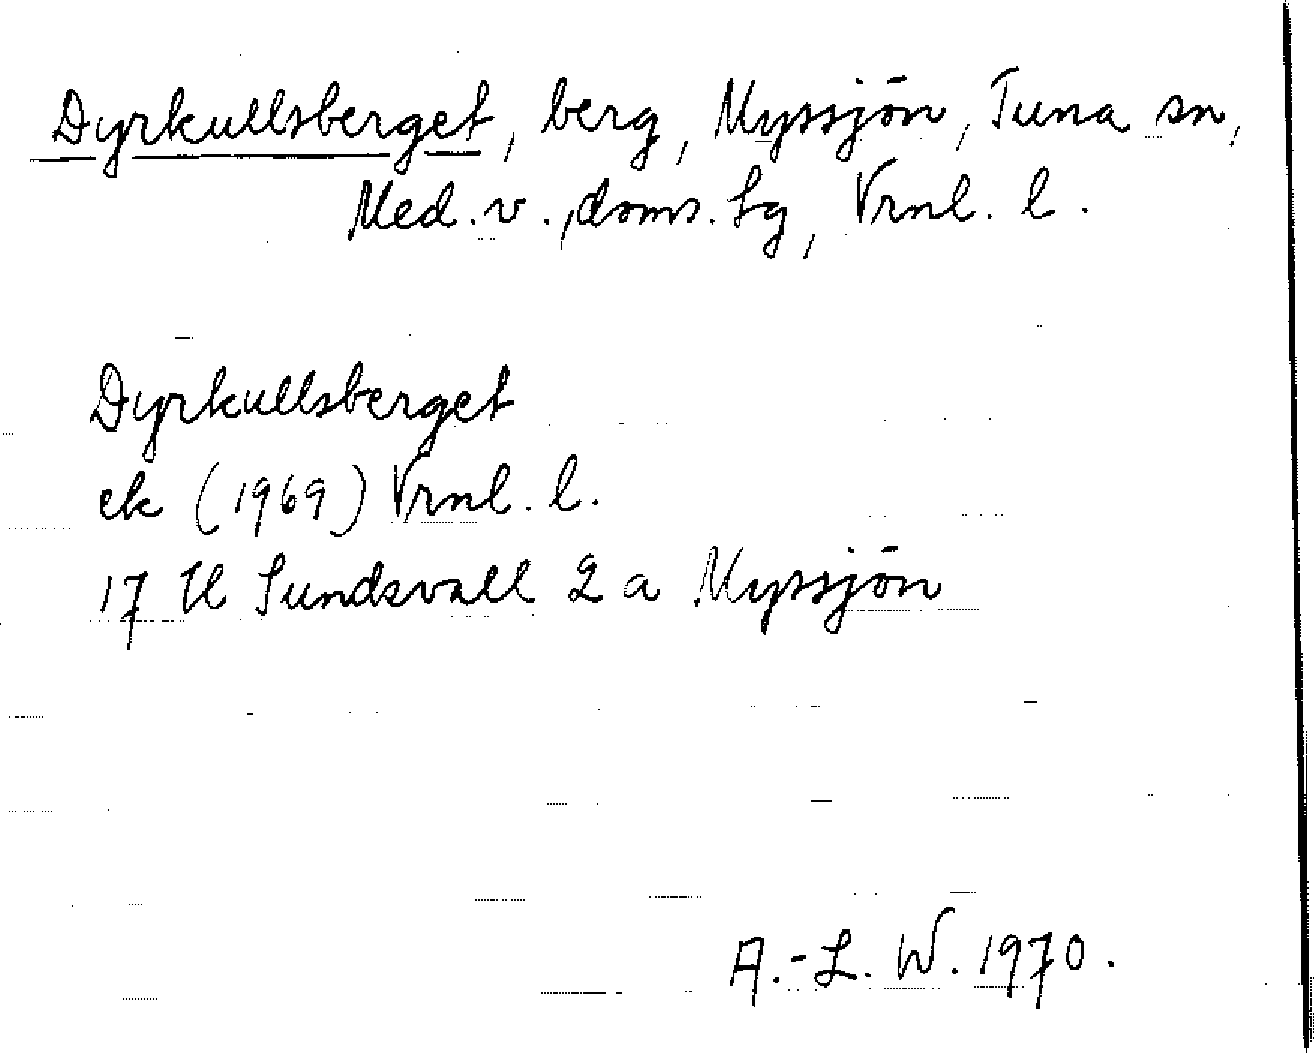 Dyrkullsberget, berg, Myssjön, Tuna sn,
Med. v., doms. Lg, Vrnl. l.
Dyrkullsberget
ek (1969) Vrnl. l.
17 H Sundsvall 2 a Myssjön
A.-L. W. 1970.